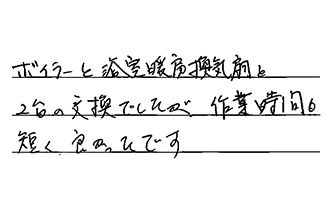 ボイラーと浴室暖房換気扇と
2台の交換でしたが 作業時間も
短く、良かったです